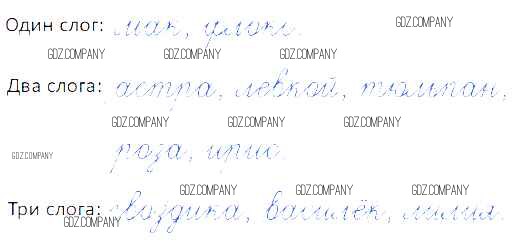 Один слог: мак, флокс.
GDZ.COMPANY
GDZ.COMPANY GDZ.COMPANY GDZ.COMPANY
Два слога: астра, левкой, тюльпан,
GDZ.COMPANY GDZ.COMPANY GDZ.COMPANY
роза, ирис.
GDZ.COMPANY
GDZ.COMPANY GDZ.COMPANY GDZ.COMPANY
Три слога: гвоздика, василёк, лилия.
GDZ.COMPANY